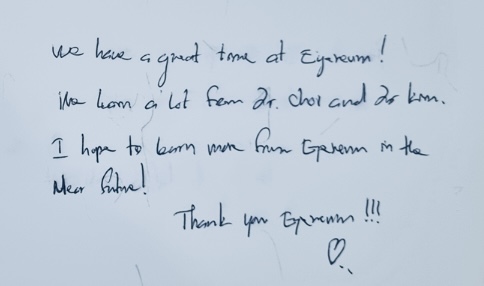 we have a great time at Eyereum!
We learn a lot from Dr. Choi and Dr Kim.
I hope to learn more from Eyereum in the
Near future!
Thank you Eyereum!!!
♡